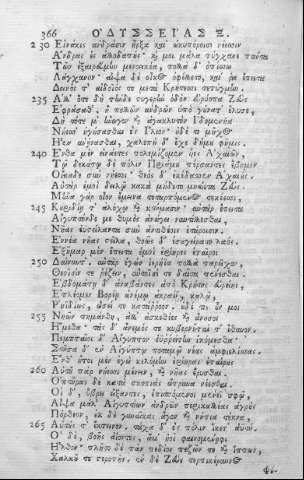 366 Ο'ΔΥΣΣΕΙΑΣ Ξ.
230 Εἰνάκις ἀνδράσιν ἦρξα καὶ ὠκυπόροισι νέεσσιν
Ἄνδρας ἐς ἀλλοδαπούς· καί μοι μάλα τύγχανε
Τῶν ἐξαιρεύμην μενοεικέα, πολλὰ δ' ὀπίσσω
Λάγχανον· αἶψα δὲ οἶκος ὀφέλλετο, καί ῥα ἔπειτα
Δεινός τ' αἰδοῖός τε μετὰ Κρήτεσσι τετύγμην.
235 Ἀλλ' ὅτε δὴ τήνδε στυγερὴν ὁδὸν εὐρύοπα Ζεὺς
Ἐφράσαθ', ἣ πολλῶν ἀνδρῶν ὑπὸ γούνατ' ἔλυσε,
Δὴ τότε μ' ἤνωγον καὶ ἀγακλυτὸν Ἰδομενῆα
Νήεσσ' ἡγήσασθαι ἐς Ἴλιον· οὐδέ τι μῆχος
Ἦεν ἀνήνασθαι, χαλεπὴ δ' ἔχε δήμου φῆμις.
240 Ἔνθα μὲν εἰνάετες πολεμίζομεν υἷες Ἀχαιῶν·
Τῷ δεκάτῳ δὲ πόλιν Πριάμου πέρσαντες ἔβημεν
Οἴκαδε σὺν νήεσσι· θεὸς δ' ἐκέδασσεν Ἀχαιούς.
Αὐτὰρ ἐμοὶ δειλῷ κακὰ μήδετο μητίετα Ζεύς.
Μῆνα γὰρ οἶον ἔμεινα τεταρπόμενος τεκέεσσι,
245 Κουριδίῃ τ' ἀλόχῳ καὶ κτήμασιν· αὐτὰρ ἔπειτα
Αἴγυπτόνδε με θυμὸς ἀνώγει ναυτίλλεσθαι,
Νῆας εὖ στείλαντα σὺν ἀντιθέοις ἑτάροισιν.
Ἐννέα νῆας στεῖλα, θοῶς δ' ἐσαγείρατο λαός.
Ἑξῆμαρ μὲν ἔπειτα ἐμοὶ ἐρίηρες ἑταῖροι
250 Δαίνυντ'· αὐτὰρ ἐγὼν ἱερήϊα πολλὰ παρεῖχον,
Θεοῖσίν τε ῥέζειν, αὐτοῖσί τε δαῖτα πένεσθαι.
Ἑβδομάτῃ δ' ἀναβάντες ἀπὸ Κρήτης εὐρείης
Ἐπλέομεν Βορέῃ ἀνέμῳ ἀκραέϊ, καλῷ,
Ῥηϊδίως, ὡσεί τε κατὰ ῥόον· οὐδέ τις οὖν μοι
255 Νηῶν πημάνθη, ἀλλ' ἀσκηθέες καὶ ἄνουσοι
Ἥμεθα· τὰς δ' ἄνεμός τε κυβερνῆταί τ' ἴθυνον.
Πεμπταῖοι δ' Αἴγυπτον ἐϋρρείτην ἱκόμεσθα·
Στῆσα δ' ἐν Αἰγύπτῳ ποταμῷ νέας ἀμφιελίσσας.
Ἔνθ' ἤτοι μὲν ἐγὼ κελόμην ἐρίηρας ἑταίρους
260 Αὐτοῦ πὰρ νήεσσι μένειν, καὶ νῆας ἔρυσθαι·
Ὀπτῆρας δὲ κατὰ σκοπιὰς ὤτρυνα νέεσθαι.
Οἱ δ', ὕβρει εἴξαντες, ἐπισπόμενοι μένεϊ σφῷ,
Αἶψα μάλ' Αἰγυπτίων ἀνδρῶν περικαλλέας ἀγροὺς
Πόρθεον, ἐκ δὲ γυναῖκας ἄγον καὶ νήπια τέκνα,
265 Αὐτούς τ' ἔκτεινον. τάχα δ' ἐς πόλιν ἵκετ' ἀϋτή.
Οἱ δέ, βοῆς ἀΐοντες, ἅμ' ἠοῖ φαινομένηφι
Ἦλθον· πλῆτο δὲ πᾶν πεδίον πεζῶν τε καὶ ἵππων,
Χαλκοῦ τε στεροπῆς. ἐν δὲ Ζεὺς τερπικέραυνος
Φύ-